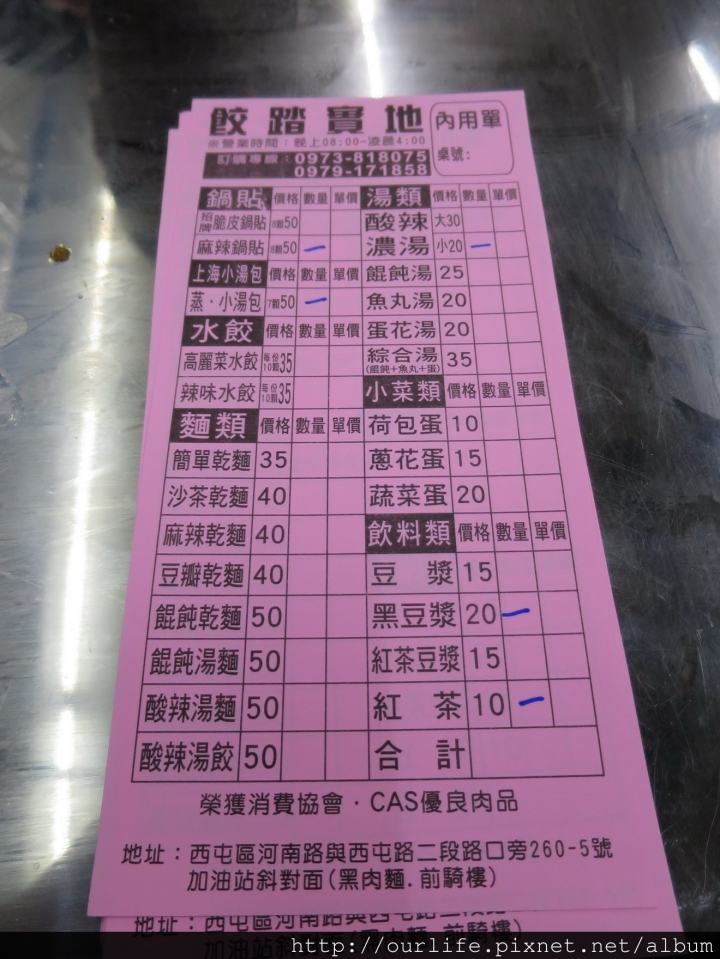 餃踏實地
內用單
※營業時間：晚上08:00-凌晨4:00
桌號：
訂購專線：0973-818075
0979-171858
鍋貼 價格 數量 單價 湯類 價格 數量 單價
招牌脆皮鍋貼 8顆50 酸辣 大30
麻辣鍋貼 8顆50 一 濃湯 小20 一
上海小湯包 價格 數量 單價 餛飩湯 25
蒸·小湯包 7顆50 一 魚丸湯 20
水餃 價格 數量 單價 蛋花湯 20
高麗菜水餃 每份10顆35 綜合湯(餛飩+魚丸+蛋) 35
辣味水餃 每份10顆35 小菜類 價格 數量 單價
麵類 價格 數量 單價 荷包蛋 10
簡單乾麵 35 蔥花蛋 15
沙茶乾麵 40 蔬菜蛋 20
麻辣乾麵 40 飲料類 價格 數量 單價
豆瓣乾麵 40 豆漿 15
餛飩乾麵 50 黑豆漿 20 一
餛飩湯麵 50 紅茶豆漿 15
酸辣湯麵 50 紅茶 10 一
酸辣湯餃 50 合計
榮獲消費協會·CAS優良肉品
地址：西屯區河南路與西屯路二段路口旁260-5號
加油站斜對面(黑肉麵.前騎樓)
地址：西屯區河南路與西屯路
加油站斜對面 前騎樓)
http://ourlife.pixnet.net/album